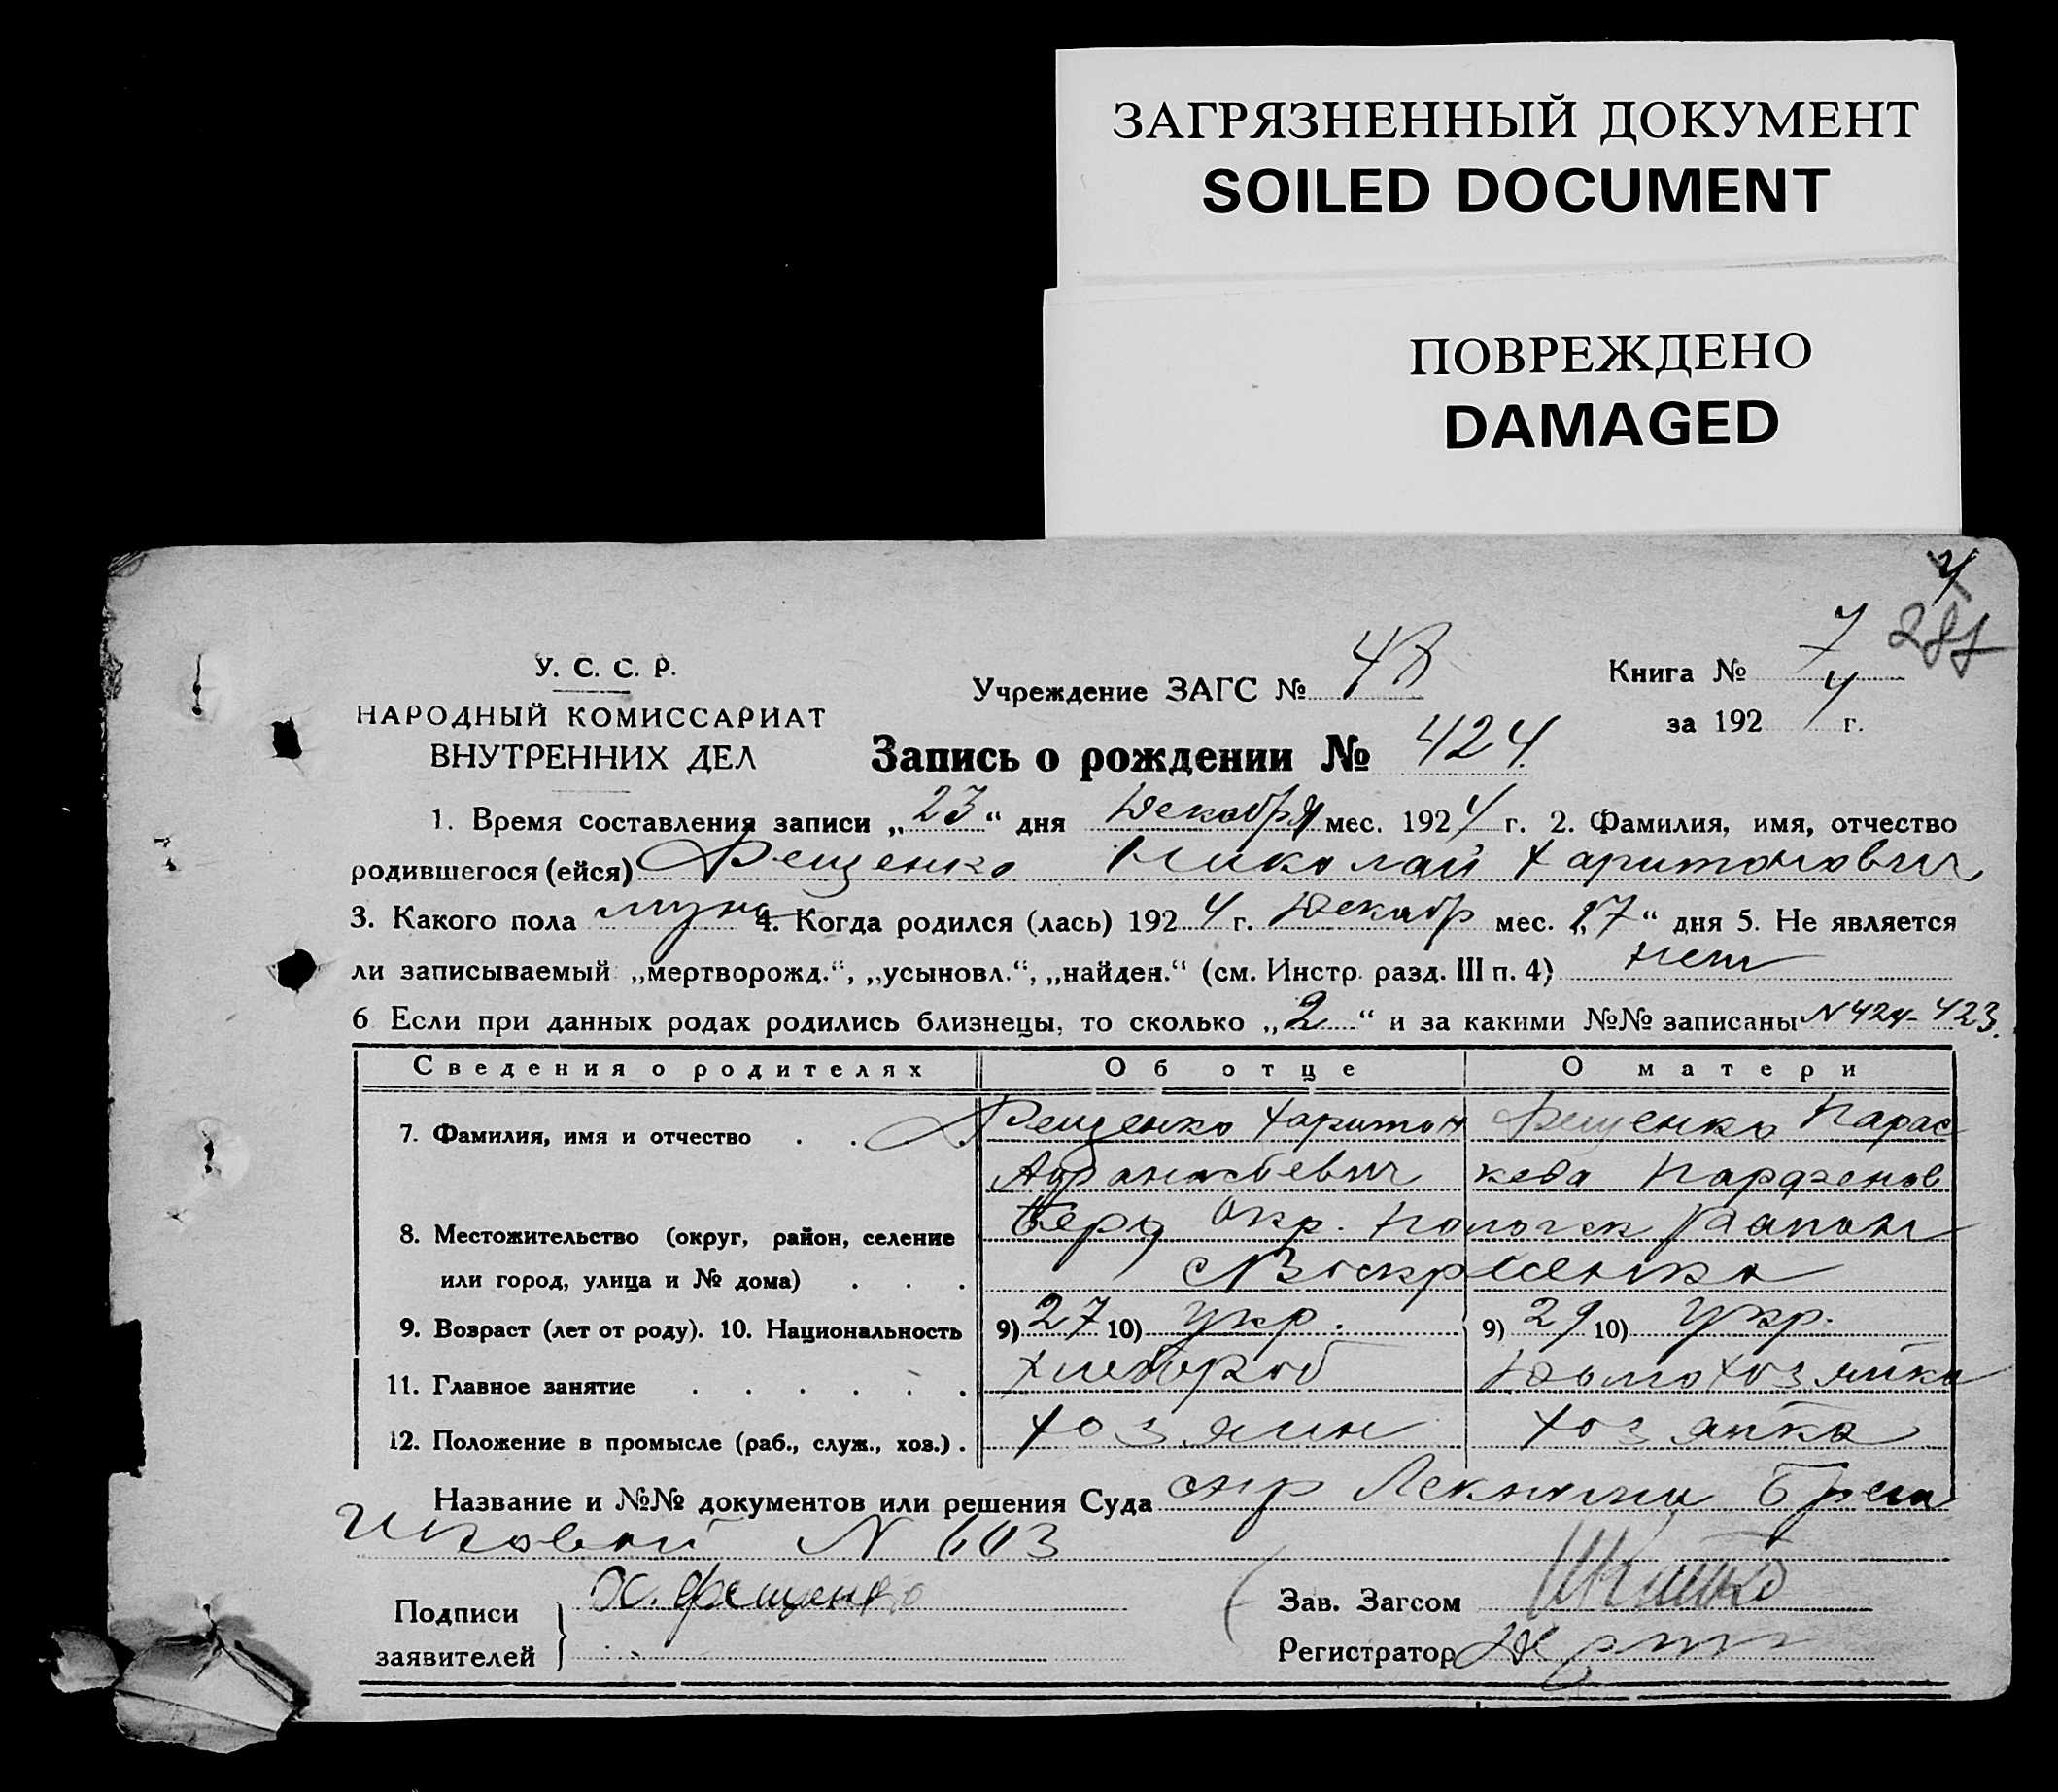 ЗАГРЯЗНЕННЫЙ ДОКУМЕНТ
SOILED DOCUMENT
ПОВРЕЖДЕНО
DAMAGED
У. С. С. Р.
НАРОДНЫЙ КОМИССАРИАТ
ВНУТРЕННИХ ДЕЛ
Учреждение ЗАГС № 48
Книга № 7
за 1924 г.
Запись о рождении № 424.
1. Время составления записи „23“ дня Декабря мес. 1924 г. 2. Фамилия, имя, отчество
родившегося (ейся) Фещенко Николай Харитонович
3. Какого пола муж 4. Когда родился (лась) 1924 г. Декабр мес. „17“ дня 5. Не является
ли записываемый „мертворожд.“, „усыновл.“, „найден.“ (см. Инстр. разд. III п. 4) нет
6 Если при данных родах родились близнецы, то сколько „2“ и за какими №№ записаны N 424-423.
Сведения о родителях Об отце О матери
7. Фамилия, имя и отчество . . Фещенко Харитон Фещенко Парас
Афанасьевич кева Парфенов
8. Местожительство (округ, район, селение Берд Окр. Пологск Район
или город, улица и № дома) . . . с Воскресенка
9. Возраст (лет от роду). 10. Национальность 9) 27 10) укр. 9) 29 10) укр.
11. Главное занятие . . . . . . Хлебороб Домохозяйка
12. Положение в промысле (раб., служ., хоз.) . хозяин хозяйка
Название и №№ документов или решения Суда
N 603
Подписи
заявителей
Х. Фещенко
Зав. Загсом
Регистратор